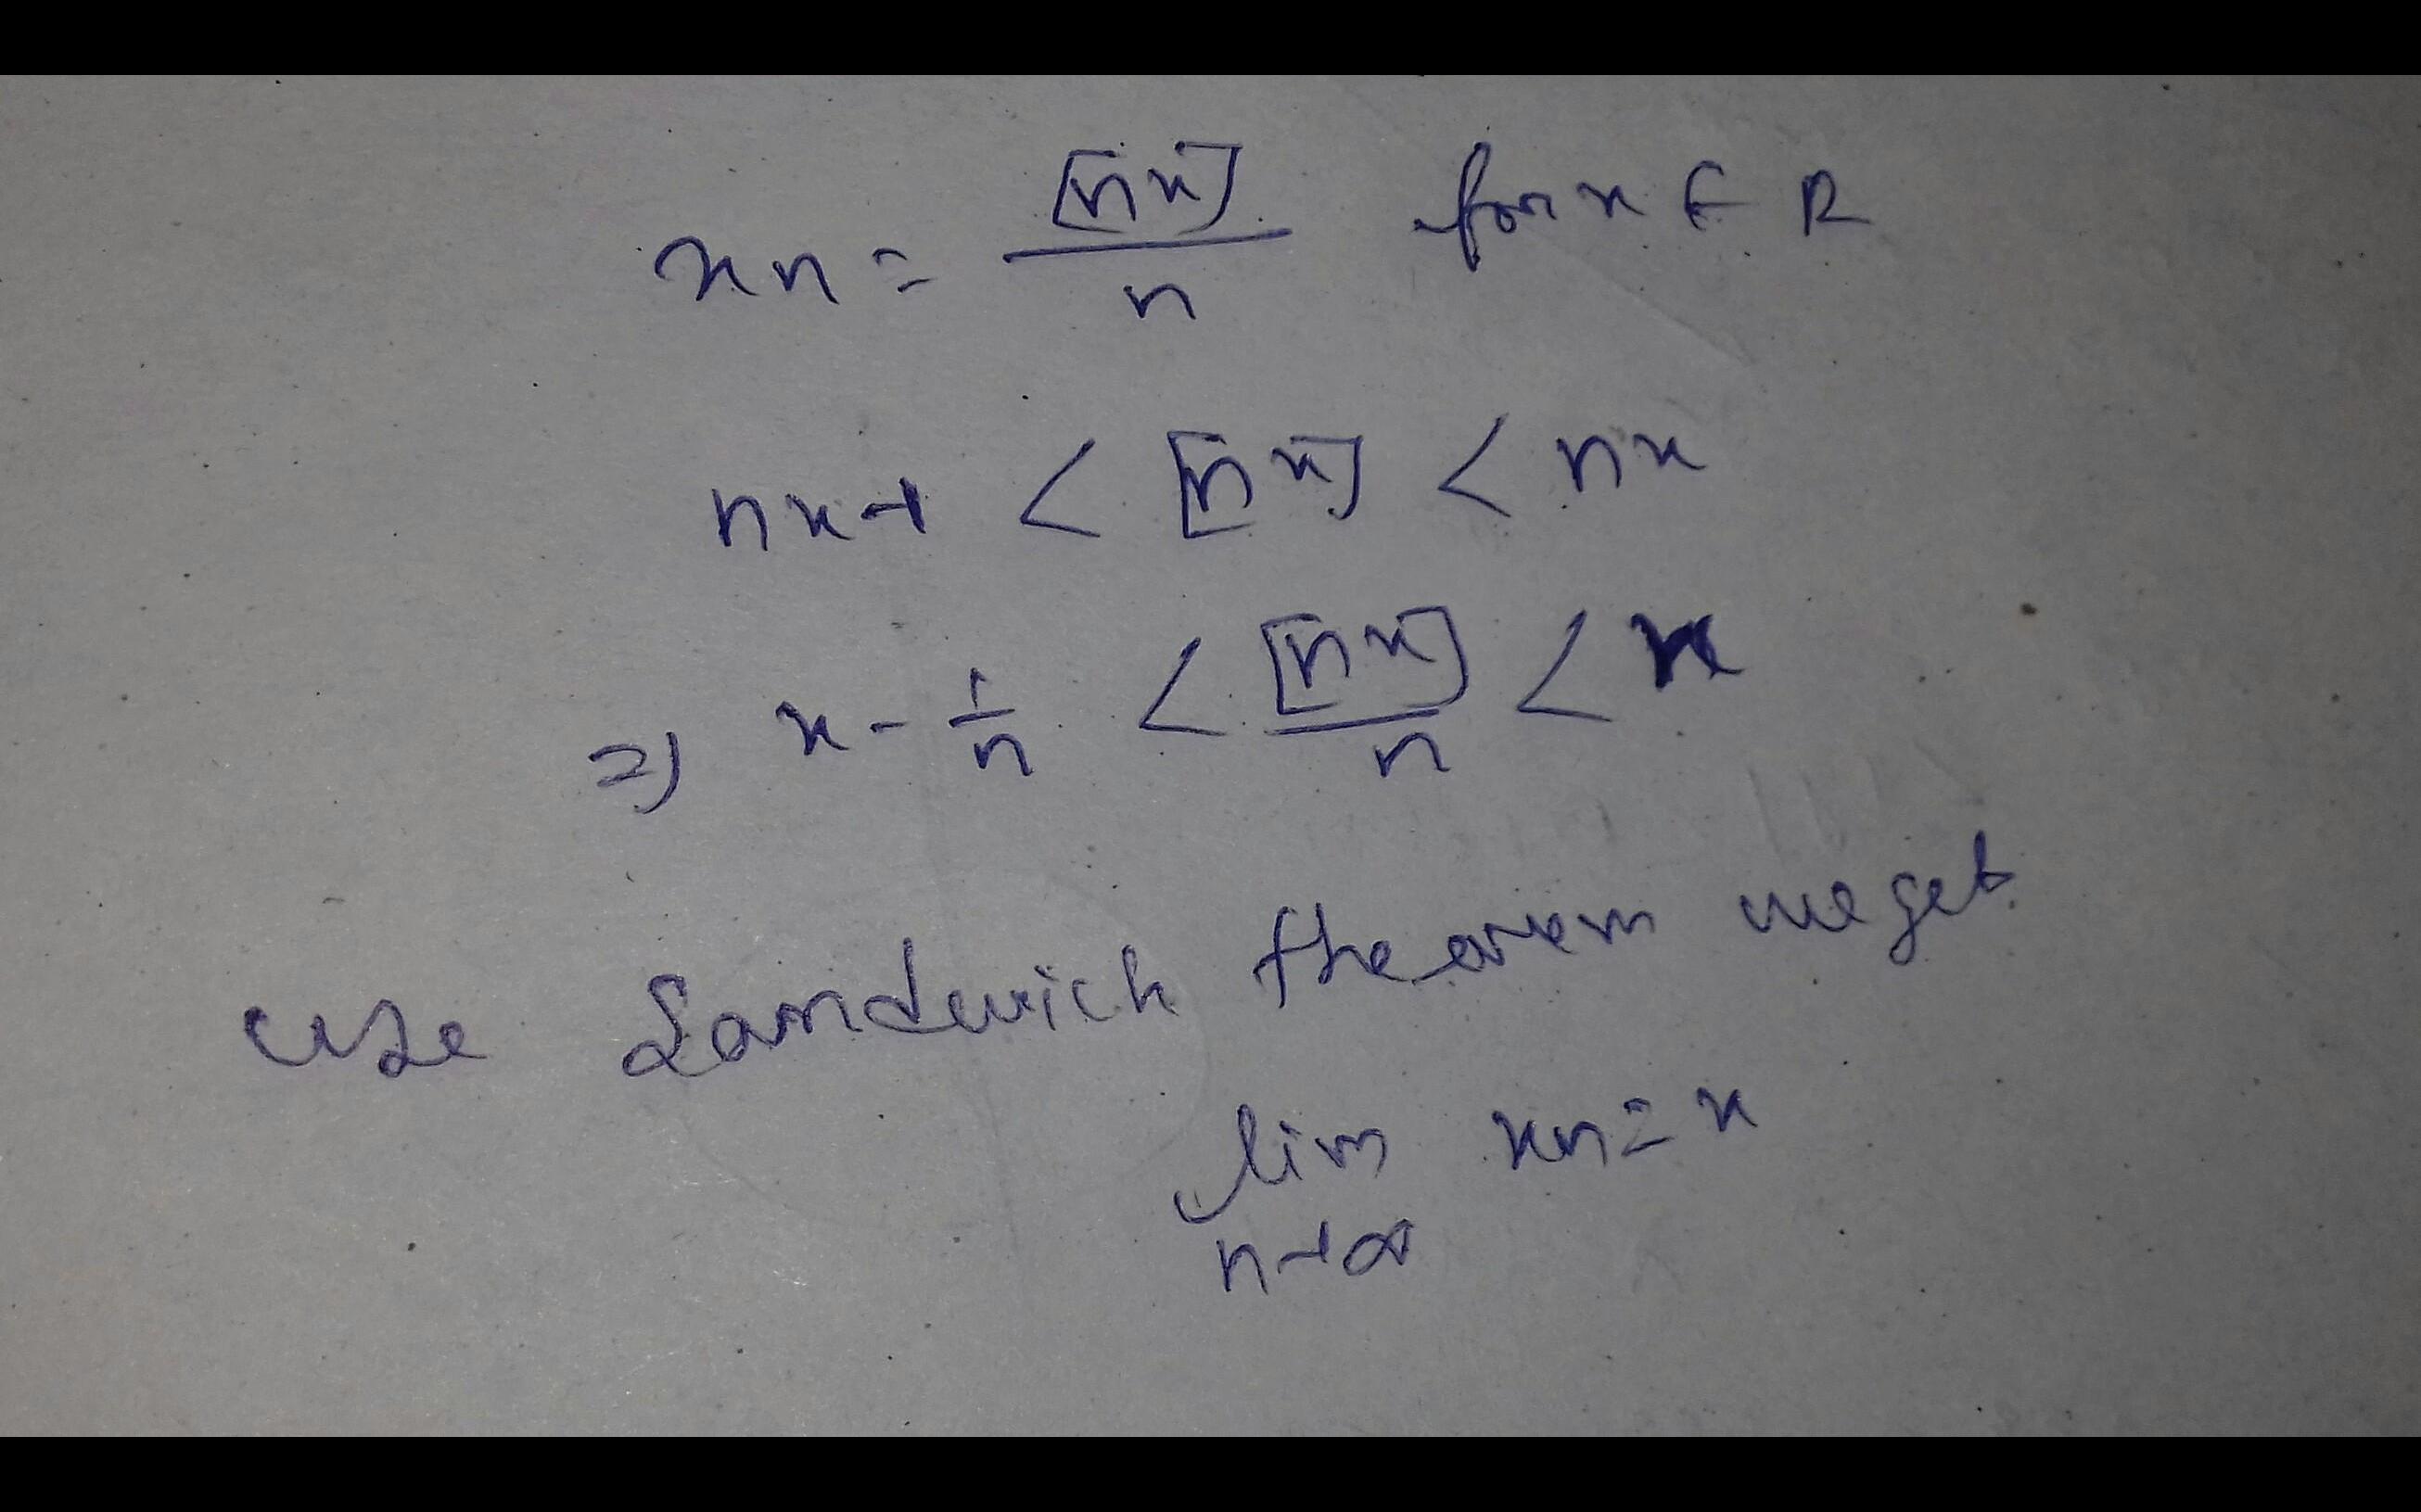 xn = [nx]/n for x ∈ R
nx-1 < [nx] < nx
=> x - 1/n < [nx]/n < x
use Sandwich theorem we get
lim xn = x
n→∞